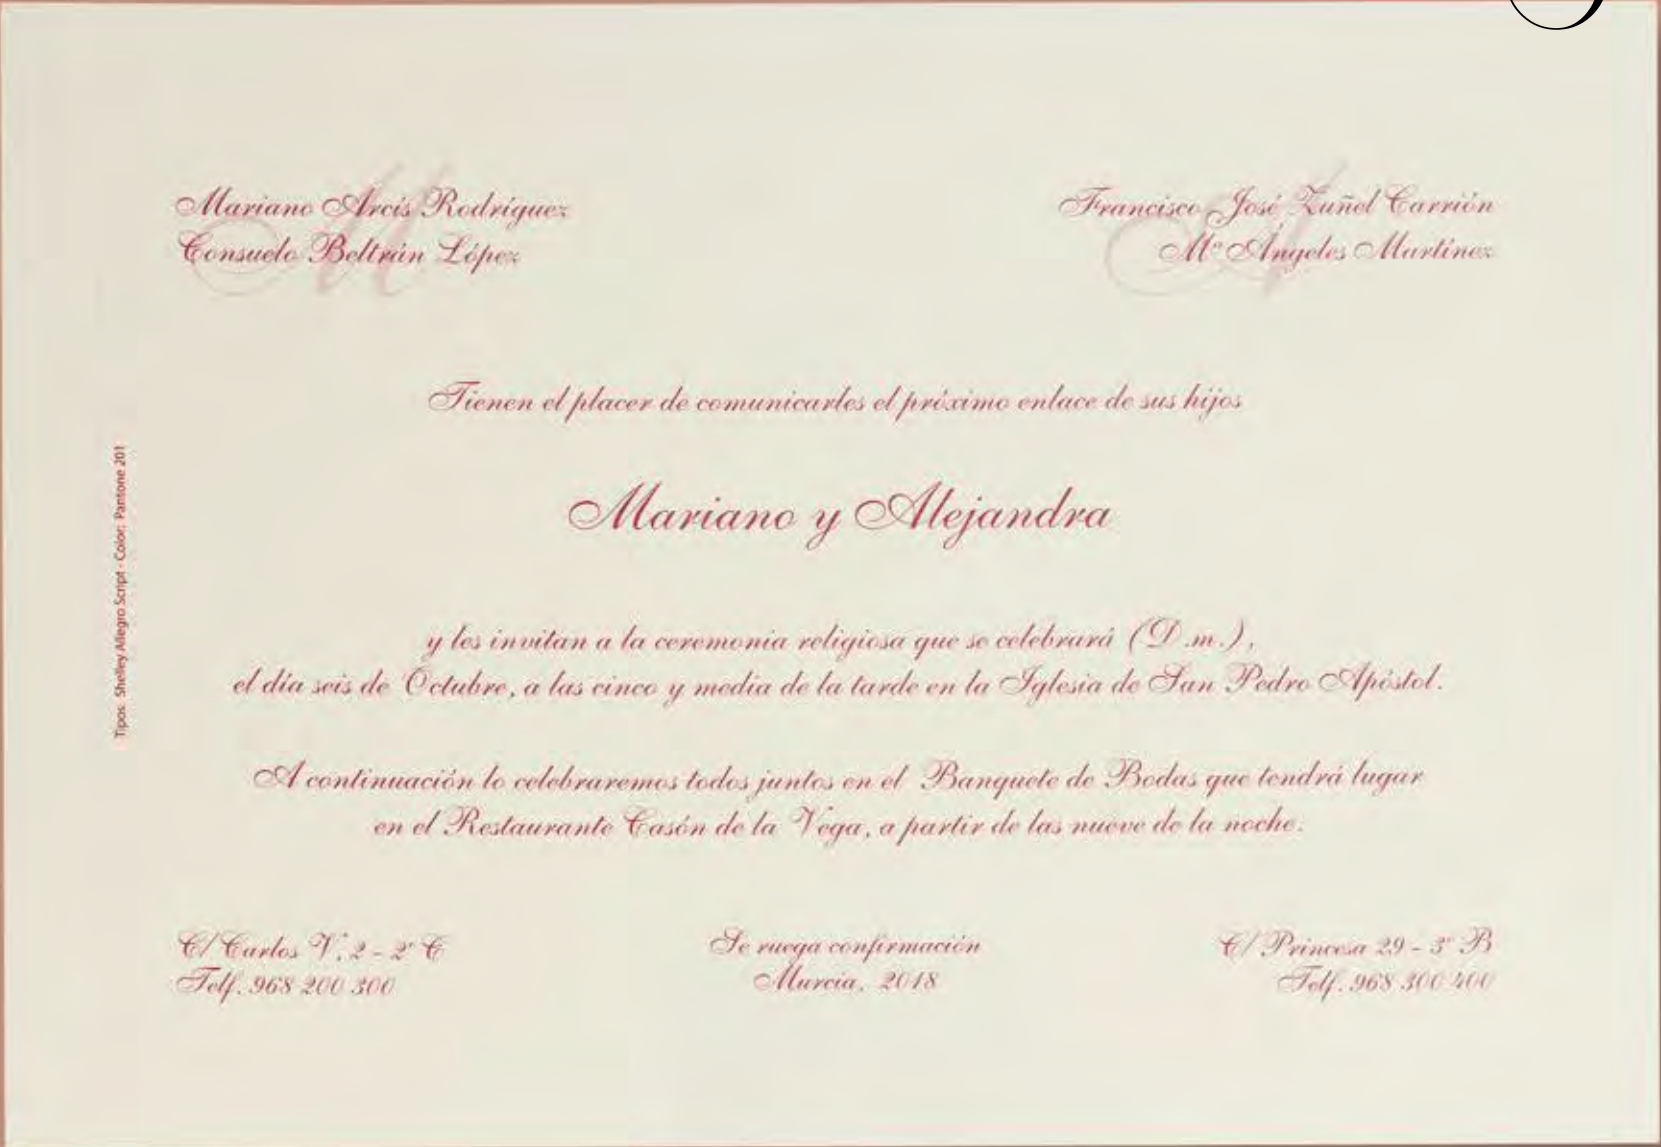 Mariano Arcis Rodríguez
Consuelo Beltrán López
Francisco José Zuñel Carrión
Mª Ángeles Martínez
Tienen el placer de comunicarles el próximo enlace de sus hijos
Mariano y Alejandra
y les invitan a la ceremonia religiosa que se celebrará (D.m.),
el día seis de Octubre, a las cinco y media de la tarde en la Iglesia de San Pedro Apóstol.
A continuación lo celebraremos todos juntos en el Banquete de Bodas que tendrá lugar
en el Restaurante Casón de la Vega, a partir de las nueve de la noche.
C/ Carlos V, 2 - 2º C
Telf. 968 200 300
Se ruega confirmación
Murcia, 2018
C/ Princesa 29 - 3º B
Telf. 968 300 400
Tipos: Shelley Allegro Script - Color: Pantone 201
M
A